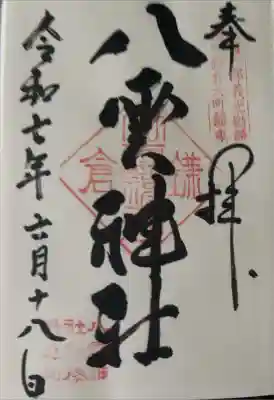 奉拝
八雲神社
鎌倉
令和七年六月十八日